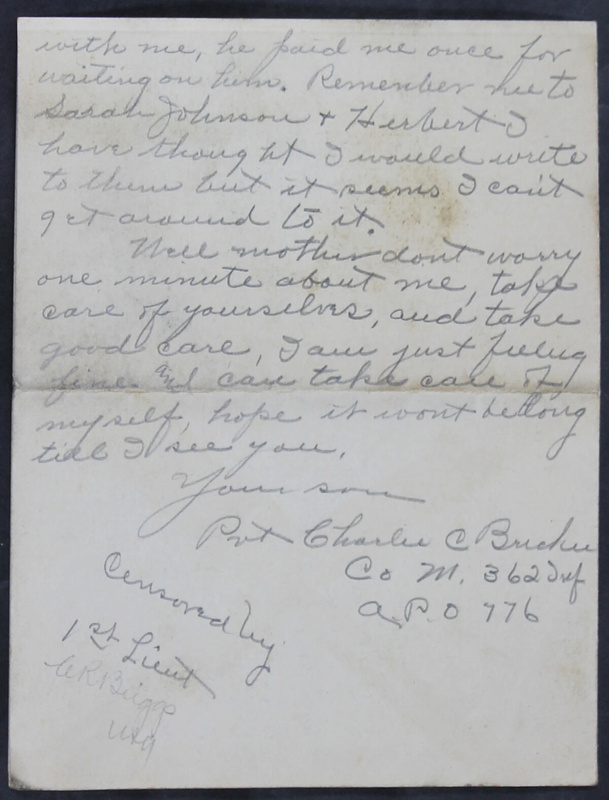 with me, he paid me once for
waiting on him. Remember me to
Sarah Johnson + Herbert I
have thought I would write
to them but it seems I can't
get around to it.
Well mother dont worry
one minute about me, take
care of yourselves, and take
good care, I am just feeling
fine and I can take care of
myself, hope it wont be long
till I see you.
Your son
Pvt Charlie C Bricker
Co M. 362 Inf
A.P.O 776
Censored by
1st Lieut
Briggs